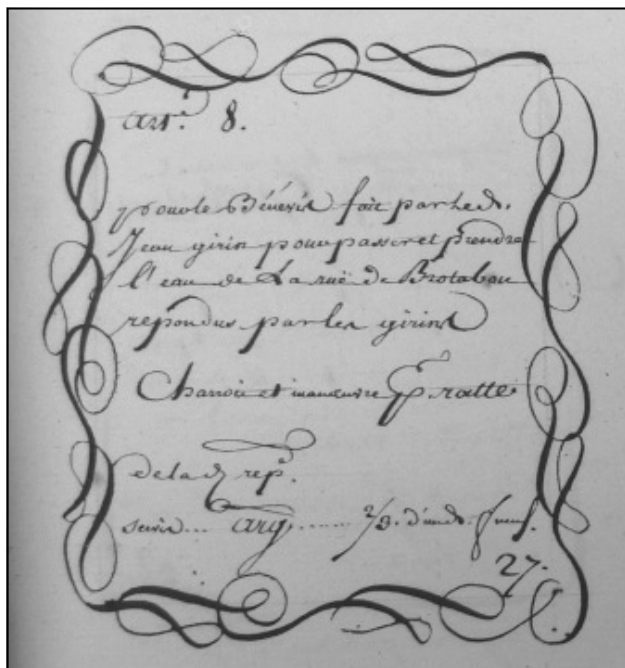 art.e 8.
pour le Bénévis fait par led.
Jean girin pour passer et prendre
l'eau de La ruë de Brotabou
repondus par les girins
Charroir et manœuvre Pratte
de la d. rep.e
servis... arg...... 2/3. d'un d. fureul.
27.